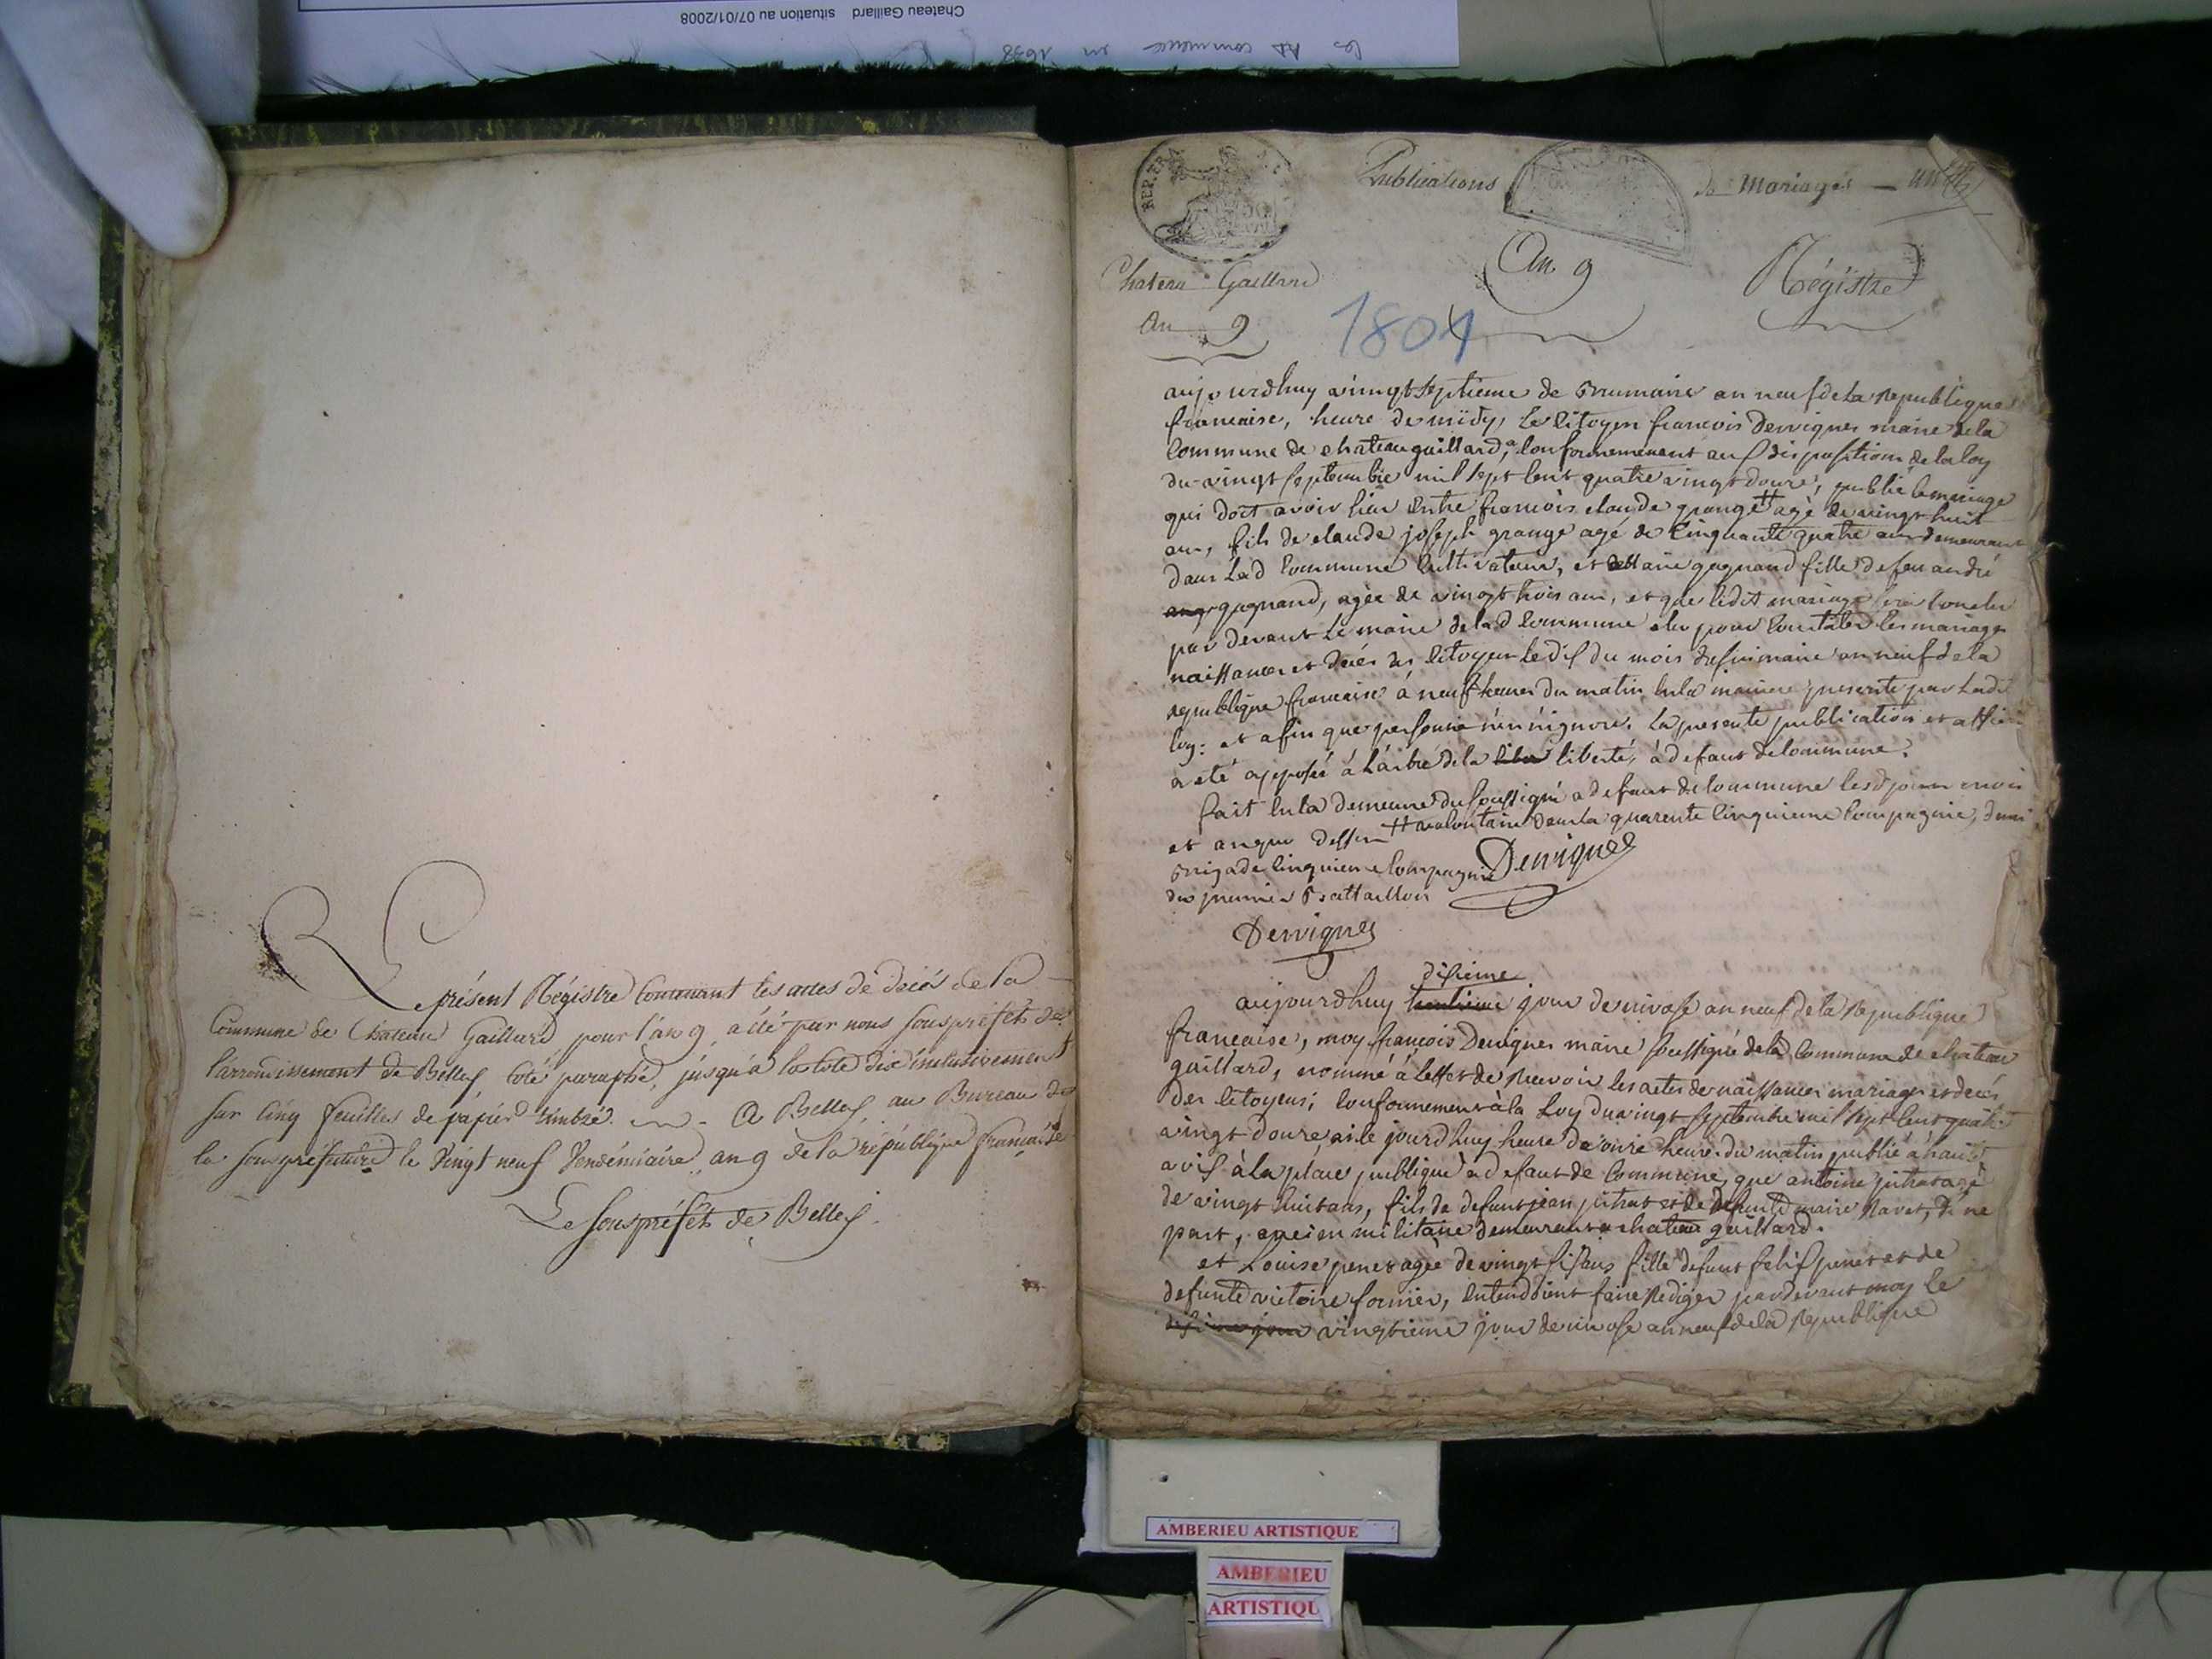 Chateau Gaillard situation au 07/01/2008
les AD commence en 1698
Le présent Régistre Contenant les actes de décés de la
Commune de Chateau Gaillard pour l'an 9, a été par nous souspréfêt de
l'arrondissement de Belley coté paraphé, jusqu'a la cote dix inclusivement
sur cinq feuilles de papier timbré. A Belley, au Bureau de
la souspréfecture le Vingt neuf Vendémiaire an 9 de la république française
Le souspréfêt de Belley
REP. FRA
Publications de Mariages — un
Chateau Gaillard
An 9
Régistre
An 9
1801
aujourdhuy vingt septieme de Brumaire an neuf de La Republique
francaise, heure de midy, Le Citoyen francois Dervignes maire de la
Commune de chateau gaillard, a Conformemement aux dispositions de la loy
du vingt septembre mil sept cent quatre vingt douze, publié le mariage
qui doit avoir lieu Entre francois claude grange # agé de vingt huit
ans, fils de claude joseph grange agé de Cinquante quatre ans demeurant
dans Lad Commune Cultivateur, et marie gagnand fille de feu andré
ang gagnand, agée de vingt trois ans, et que ledit mariage sera Conclu
par devant Le maire de lad Commune elu pour Constater les mariages
naissances et décés des Citoyens le dix du mois de frimaire an neuf de la
republique francaise à neuf heures du matin En la maniere prescrite par Ladt
loy: et afin que personne n'en n'ignore. La presente publication et affiche
a été apposée à L'arbre de la liber liberté, à defaut de Commune.
fait En la demeure du soussigné a defaut de Commune lesd jour mois
et an que dessus # volontaire dans la quarente Cinquieme Compagnie, demi
Brigade Cinquieme Compagnie Dervignes
du premier Battaillon
Dervignes
dixieme
aujourdhuy jour de nivose an neuf de la Republique
francaise, moy francois Dervignes maire soussigné de la Commune de chateau
gaillard, nommé à leffet de Recevoir les actes de naissances mariages et décés
des Citoyens; Conformement à la Loy du vingt septembre mil sept cent quatre
vingt douze, ai le jourdhuy heure de onze heure du matin publié à haute
voix à la place publique à defaut de Commune, que antoine agé
de vingt huit ans, fils de defunt jean et de defunte marie Navet, d'une
part, ancien militaire demeurant a chateau gaillard.
et Louise penet agée de vingt six ans fille defunt felix penet et de
defunte victoire fornier, Entendoient faire Rediger pardevant moy le
dixieme jour vingtieme jour de nivose an neuf de la Republique
AMBERIEU ARTISTIQUE
AMBERIEU
ARTISTIQU